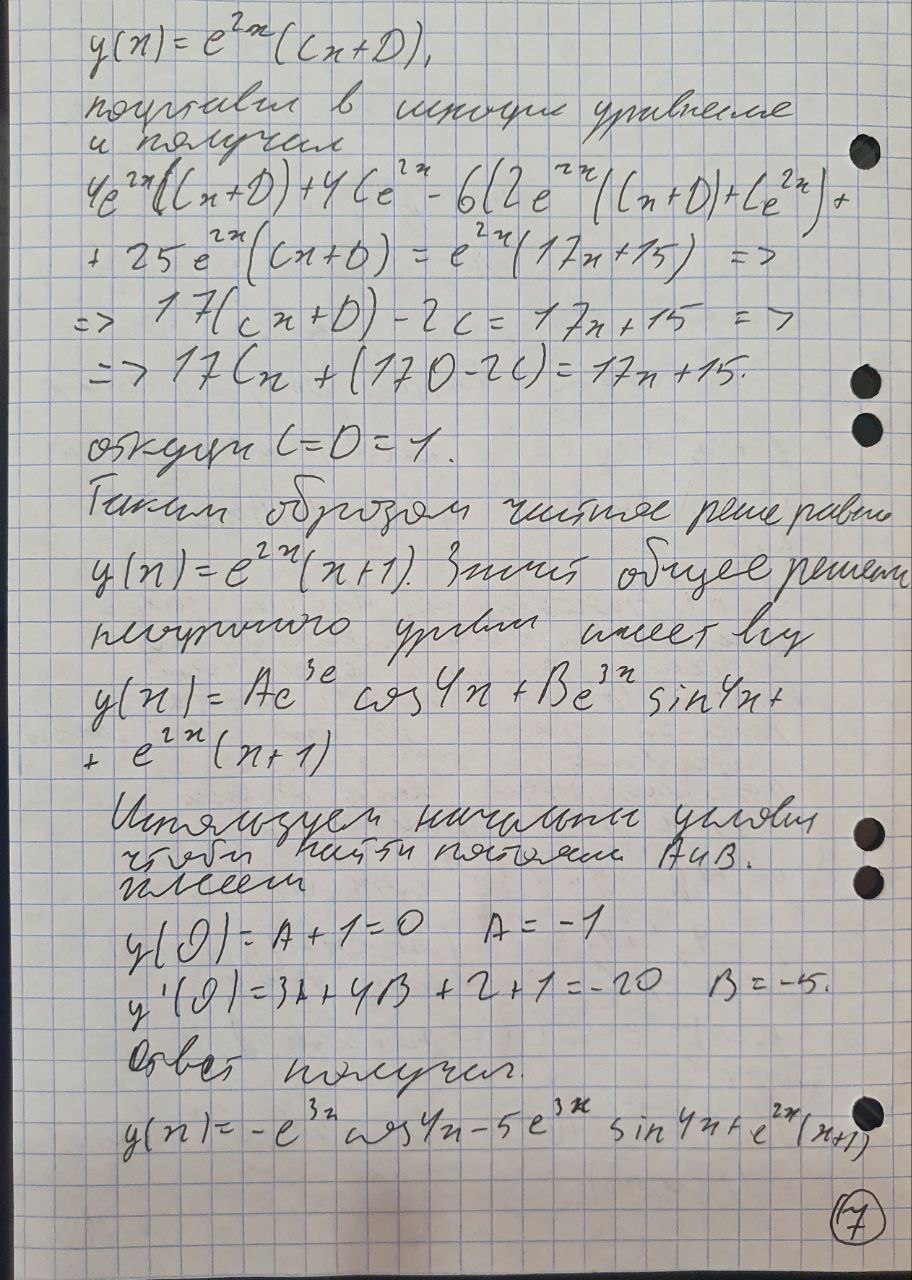 y(x) = e^{2x}(Cx+D),
подставил в исходное уравнение
и получил
4e^{2x}(Cx+D)+4Ce^{2x}-6(2e^{2x}(Cx+D)+Ce^{2x})+
+ 25e^{2x}(Cx+D) = e^{2x}(17x+15) =>
=> 17(Cx+D)-2C = 17x+15 =>
=> 17Cx + (17D-2C) = 17x+15.
откуда C=D=1.
Таким образом частное реше равно
y(x)=e^{2x}(x+1). Значит общее решени
уравн имеет вид
y(x) = Ae^{3e} cos4x + Be^{3x} sin4x+
+ e^{2x}(x+1)
Используем начальны условия
чтобы найти A и B.
имеем
y(0) = A+1=0 A = -1
y'(0) = 3A+4B+2+1=-20 B = -5.
Ответ получил.
y(x) = -e^{3x} cos4x-5e^{3x} sin4x+e^{2x}(x+1)
7